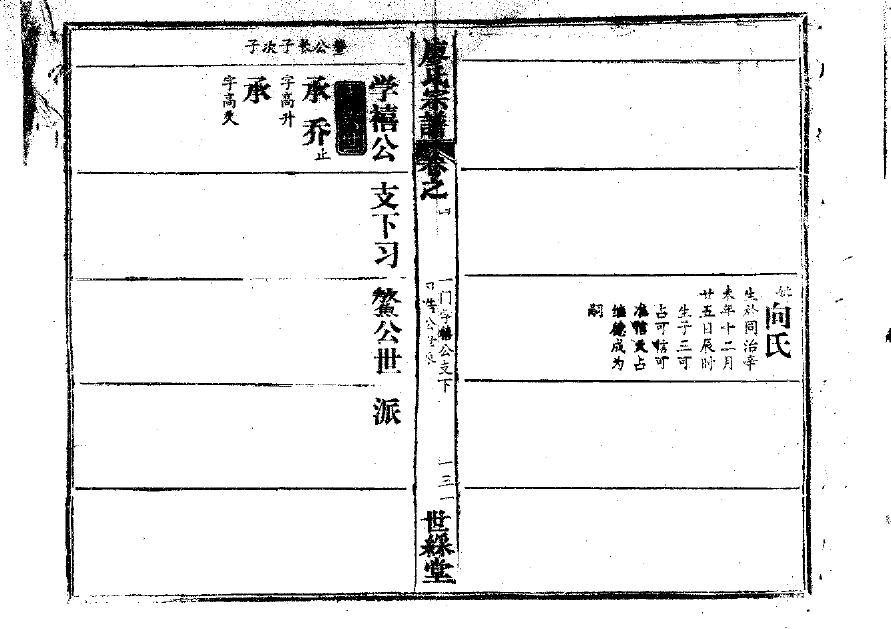 向氏
生於同治辛
未年十二月
廿五日辰时
生子三可
占可恃可
准恃灵占
继德成为
嗣
廖氏宗譜卷之四
一门学禧公支下
一三一
世綵堂
学禧公支下习鳌公世派
鳌公长子次子
承乔止
字高升
承
字高灵